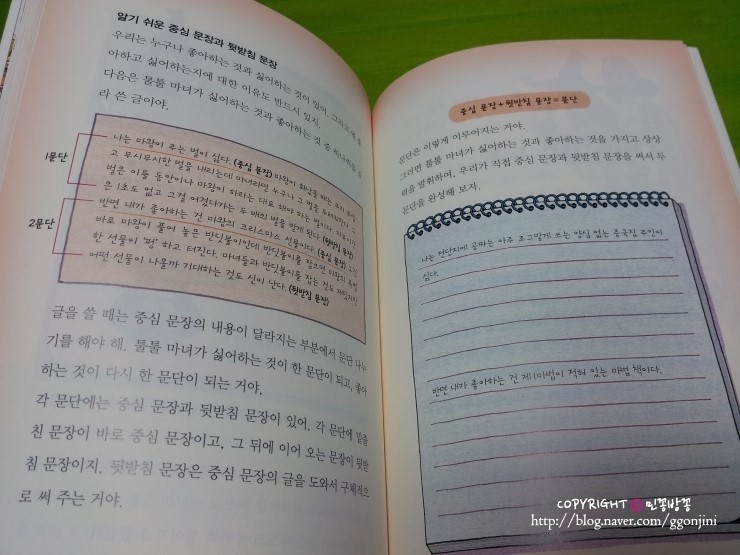 알기 쉬운 중심 문장과 뒷받침 문장
우리는 누구나 좋아하는 것과 싫어하는 것이 있어. 그리고 왜 좋
아하고 싫어하는지에 대한 이유도 반드시 있지.
다음은 툴툴 마녀가 싫어하는 것과 좋아하는 것 중
라 쓴 글이야.
1문단
2문단
나는 마왕이 주는 벌이 싫다. (중심 문장) 마왕이 화났을 때는
고 무시무시한 벌을 내리는데 마녀라면 누구나 그 벌을
벌은 이틀 동안이나 마왕이 하라는 대로 해야 하는 벌이다.
은 1초도 없고 그걸 어겼다가는 두 배의 벌을 받게 된다. (뒷받침 문장)
반면 내가 좋아하는 건 마왕의 크리스마스 선물이다. (중심 문장)
바로 마왕이 풀어 놓은 반딧불이인데 반딧불이를 잡으면
한 선물이 '펑' 하고 터진다. 마녀들과 반딧불이를 잡는 것도
어떤 선물이 나올까 기대하는 것도 신이 난다. (뒷받침 문장)
글을 쓸 때는 중심 문장의 내용이 달라지는 부분에서 문단 나누
기를 해야 해. 툴툴 마녀가 싫어하는 것이 한 문단이 되고, 좋아
하는 것이 다시 한 문단이 되는 거야.
각 문단에는 중심 문장과 뒷받침 문장이 있어. 각 문단에 밑줄
친 문장이 바로 중심 문장이고, 그 뒤에 이어 오는 문장이 뒷받
침 문장이지. 뒷받침 문장은 중심 문장의 글을 도와서 구체적으
로 써 주는 거야.
중심 문장 + 뒷받침 문장 = 문단
문단은 이렇게 이루어지는 거야.
그러면 툴툴 마녀가 싫어하는 것과 좋아하는 것을 가지고 상상
력을 발휘하여, 우리가 직접 중심 문장과 뒷받침 문장을 써서 두
문단을 완성해 보자.
나는 전단지에 곱빼기는 아주 조그맣게 쓰는 양심 없는 중국집 주인이
싫다.
반면 내가 좋아하는 건 제1마법이 적혀 있는 마법 책이다.
COPYRIGHT 민꽁방꽁
http://blog.naver.com/ggonjini